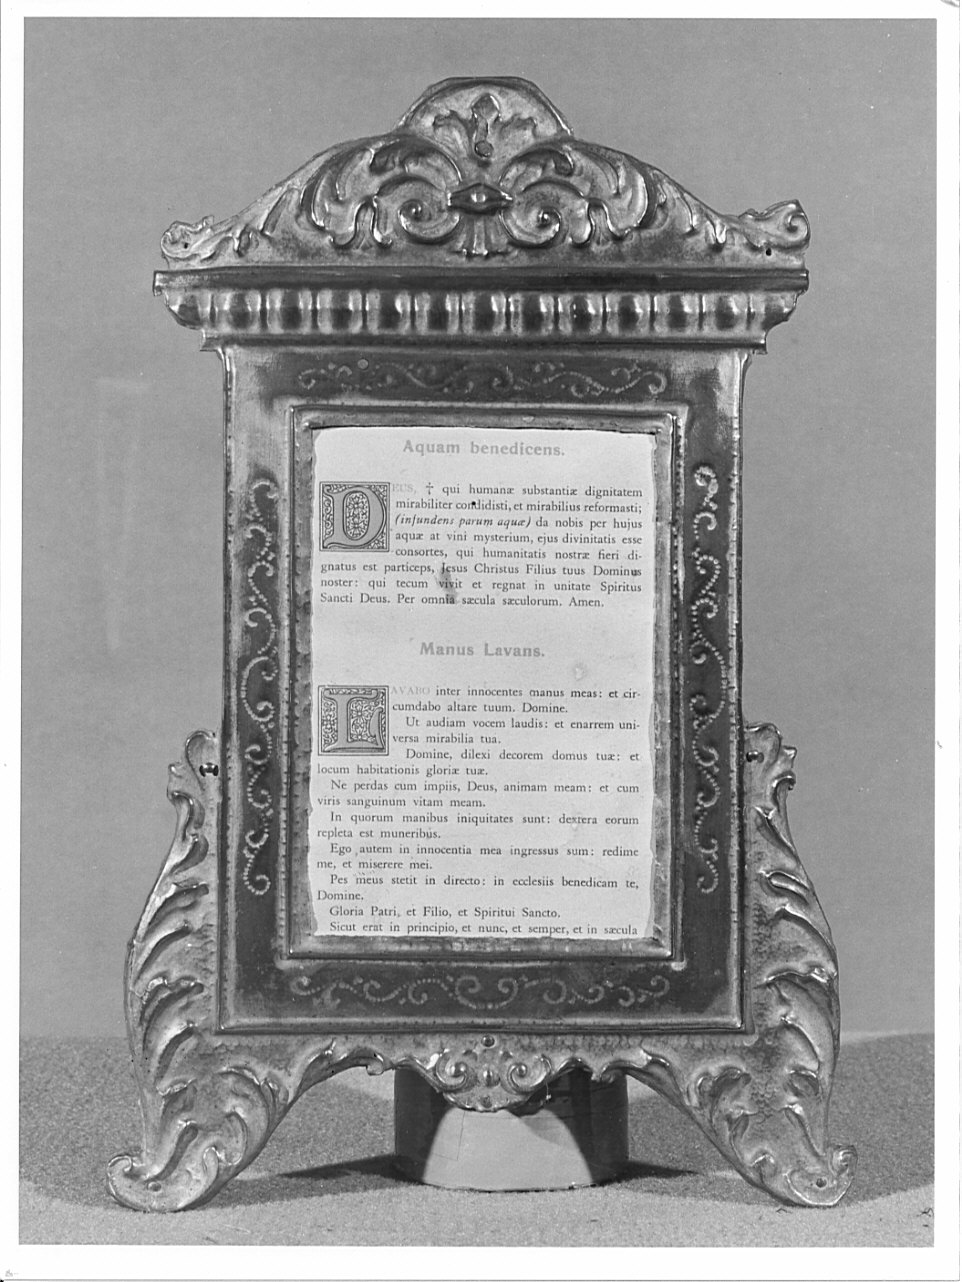 Aquam benedicens.
DEUS, † qui humanæ substantiæ dignitatem
mirabiliter condidisti, et mirabilius reformasti;
(infundens parum aquæ) da nobis per hujus
aquæ at vini mysterium, ejus divinitatis esse
consortes, qui humanitatis nostræ fieri di-
gnatus est particeps, Jesus Christus Filius tuus Dominus
noster: qui tecum vivit et regnat in unitate Spiritus
Sancti Deus. Per omnia sæcula sæculorum. Amen.
Manus Lavans.
LAVABO inter innocentes manus meas: et cir-
cumdabo altare tuum. Domine.
Ut audiam vocem laudis: et enarrem uni-
versa mirabilia tua.
Domine, dilexi decorem domus tuæ: et
locum habitationis gloriæ tuæ.
Ne perdas cum impiis, Deus, animam meam: et cum
viris sanguinum vitam meam.
In quorum manibus iniquitates sunt: dextera eorum
repleta est muneribus.
Ego autem in innocentia mea ingressus sum: redime
me, et miserere mei.
Pes meus stetit in directo: in ecclesiis benedicam te,
Domine.
Gloria Patri, et Filio, et Spiritui Sancto.
Sicut erat in principio, et nunc, et semper, et in sæcula